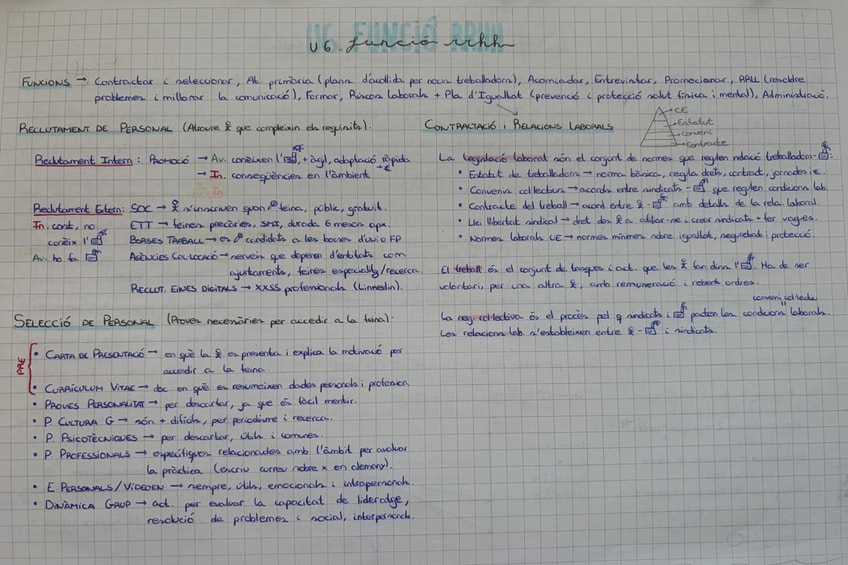 U6. Funció rrhh
FUNCIONS → Contractar i seleccionar, At. primària (plans d'acollida per nous treballadors), Acomiadar, Entrevistar, Promocionar, RRLL (resoldre
problemes i millorar la comunicació), Formar, Riscos Laborals + Pla d'Igualtat (prevenció i protecció salut física i mental), Administració.
RECLUTAMENT DE PERSONAL (Atreure que compleixin els requisits).
Reclutament Intern: PROMOCIÓ → Av. coneixen l' , + àgil, adaptació ràpida
→ In. conseqüències en l'ambient
Reclutament Extern: SOC → s'inscriuen quan feina, públic, gratuït.
In. cost, no
coneix l'
Av. ho fa
ETT → feines precàries, SMI, durada 6 mesos apx.
BORSES TREBALL → en candidats a les borses d'unio FP
AGÈNCIES COL·LOCACIÓ → serveis que depenen d'entitats com
ajuntaments, feines especialitz/recerca.
RECLUT. EINES DIGITALS → XXSS professionals (Linkedin).
SELECCIÓ DE PERSONAL (Proves necessàries per accedir a la feina).
PRE
• CARTA DE PRESENTACIÓ → en què la es presenta i explica la motivació per
accedir a la feina.
• CURRÍCULUM VITAE → doc en què es resumeixen dades personals i profession.
• PROVES PERSONALITAT → per descartar, ja que és fàcil mentir.
• P. CULTURA G → són + difícils, per periodisme i recerca.
• P. PSICOTÈCNIQUES → per descartar, útils i comunes.
• P. PROFESSIONALS → específiques relacionades amb l'àmbit per avaluar
la pràctica (escriu correu sobre x en alemany).
• E. PERSONALS/VIDEOEN → sempre, útils, emocionals i intrapersonals.
• DINÀMICA GRUP → act. per evaluar la capacitat de lideratge,
resolució de problemes i social, interpersonals.
CONTRACTACIÓ i RELACIONS LABORALS
CE
Estatut
conveni
Contracte
La legislació laboral són el conjunt de normes que regulen relació treballador -
• Estatut de treballadors → norma bàsica, regula drets, contract, jornades i s.
• Convenis col·lectius → acords entre sindicats - que regulen condicions lab.
• Contracte del treball → acord entre - amb detalls de la rela. laboral.
• Llei llibertat sindical → dret dels a afiliar-se i crear sindicats + fer vagues.
• Normes laborals UE → normes mínimes sobre igualtat, seguretat i protecció.
El treball és el conjunt de tasques i act. que les fan dins l' . Ha de ser
voluntari, per una altra , amb remuneració i rebent ordres.
conveni col·lectiu
La neg. col·lectiva és el procés pel q sindicats i pacten les condicions laborals.
Les relacions lab. s'estableixen entre - i sindicats.